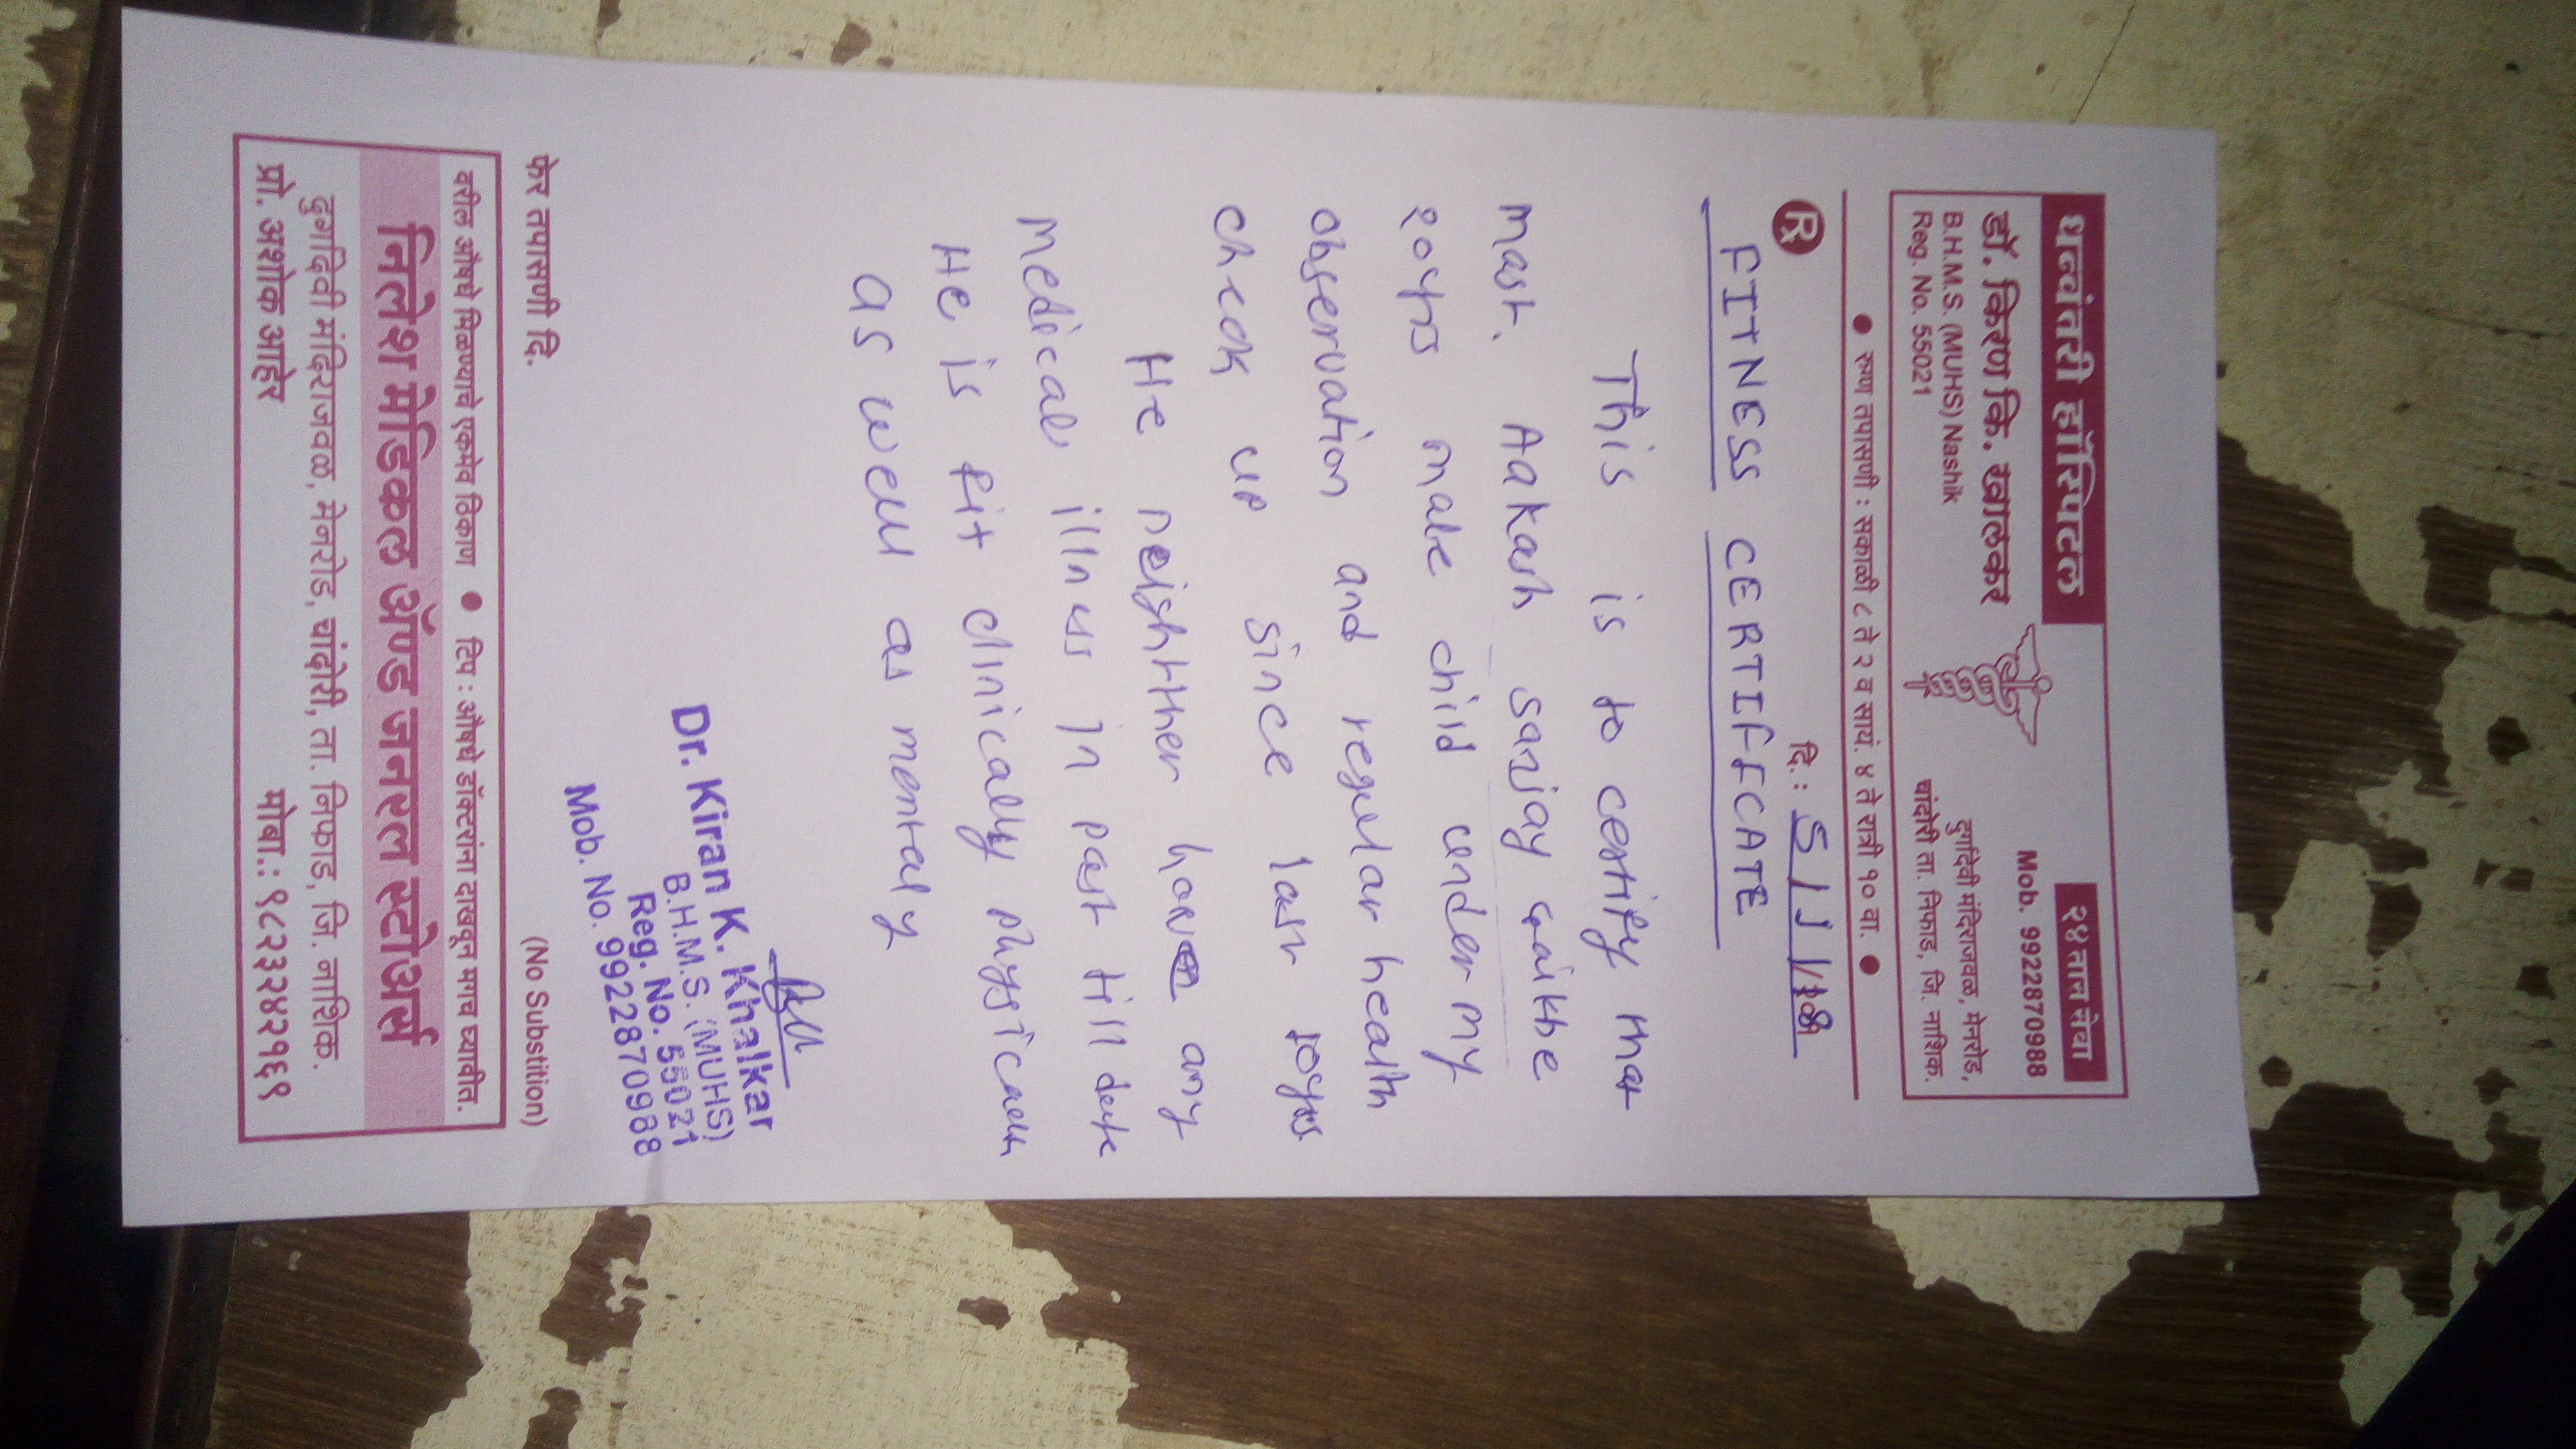 धन्वंतरी हॉस्पिटल
२४ तास सेवा
डॉ. किरण कि. खालकर
Mob. 9922870988
B.H.M.S. (MUHS) Nashik
दुर्गादेवी मंदिराजवळ, मेनरोड,
Reg. No. 55021
चांदोरी ता. निफाड, जि. नाशिक.
● रुग्ण तपासणी : सकाळी ८ ते २ व सायं. ४ ते रात्री १० वा. ●
Rx
दि.: 5/1/18
FITNESS CERTIFICATE
This is to certify that
mast. Aakash sanjay
20yrs male child under my
observation and regular health
check up since last 10yrs
He neishtther have any
medical illness in past till date
He is fit clinically physically
as well as mentaly
Dr. Kiran K. Khalkar
B.H.M.S. (MUHS)
Reg. No. 55021
Mob. No. 9922870988
फेर तपासणी दि.
(No Substition)
वरील औषधे मिळण्याचे एकमेव ठिकाण ● टिप : औषधे डॉक्टरांना दाखवून मगच घ्यावीत.
निलेश मेडिकल ॲण्ड जनरल स्टोअर्स
दुर्गादेवी मंदिराजवळ, मेनरोड, चांदोरी, ता. निफाड, जि. नाशिक.
प्रो. अशोक आहेर
मोबा.: ९८२३२४२१६१